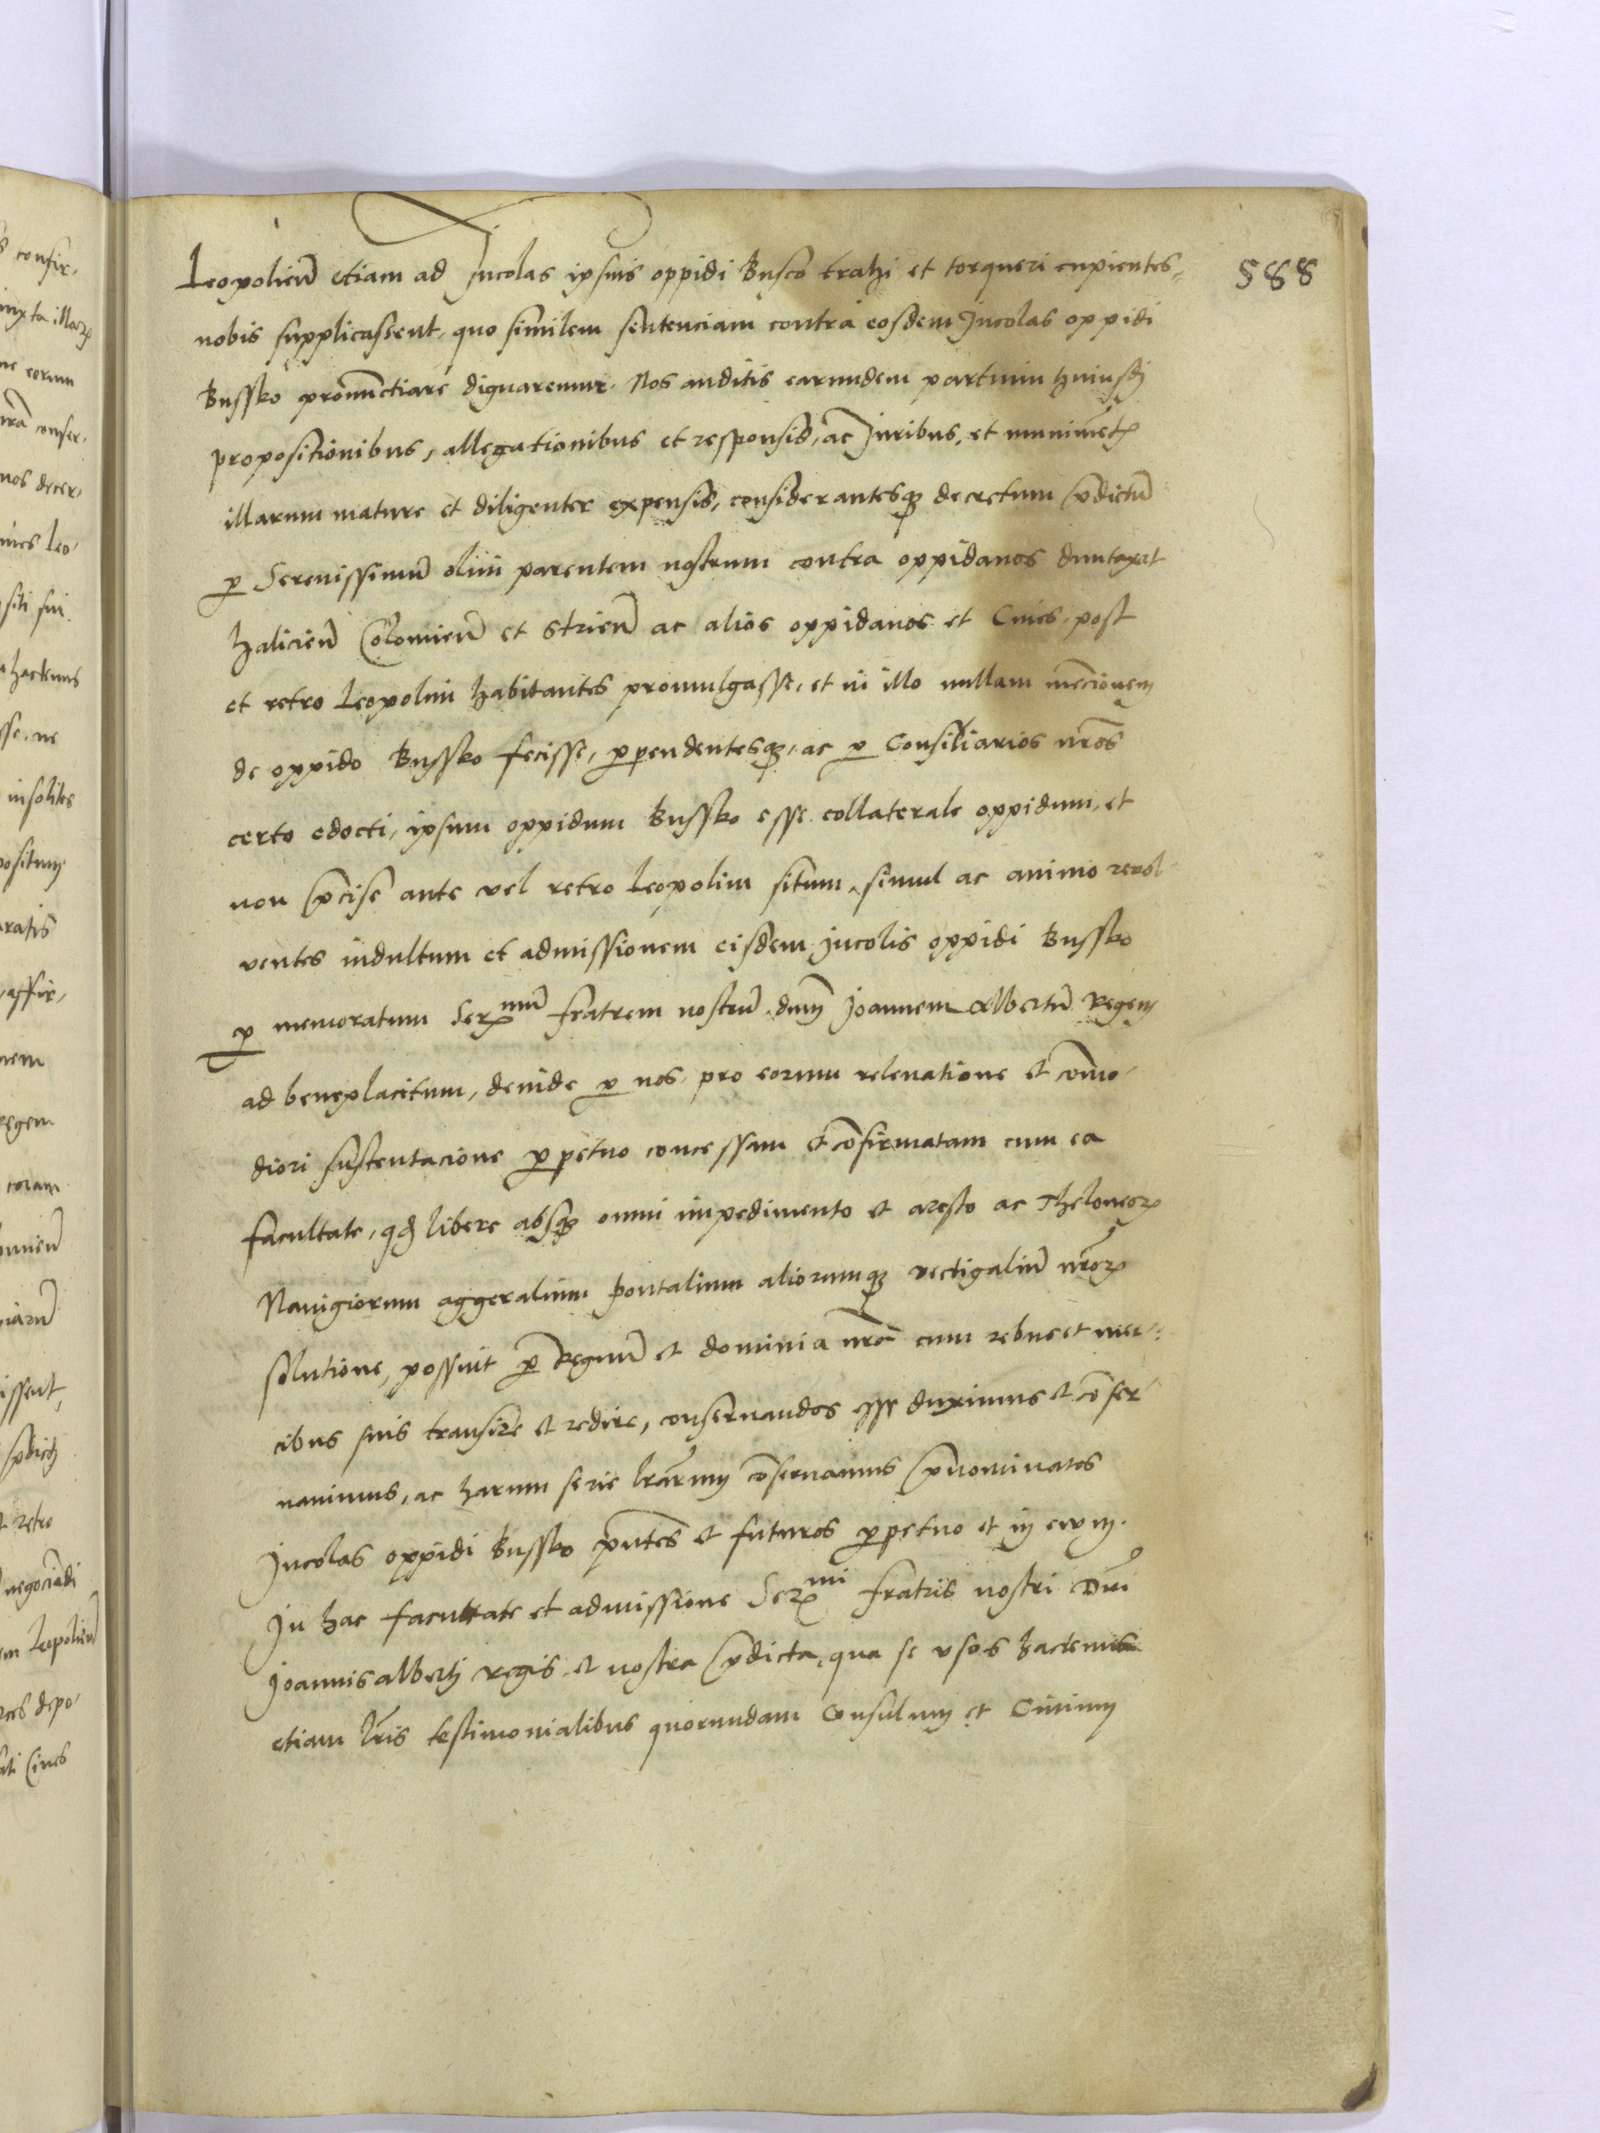 588
Leopolien̄ etiam ad Incolas ipsius oppidi Busco trahi et torqueri cupientes
nobis supplicassent, quo similem sentenciam contra eosdem Incolas oppidi
Bussko pronunctiare dignaremur. Nos auditis earundem partium huiusꝫ
propositionibus, allegationibus et responsis, ac Juribus, et munimetꝭ
illarum mature et diligenter expensis, considerantesqꝫ decretum p̄dictū
ꝑ Serenissimū olim parentem nostrum contra oppidanos duntaxat
Halicien̄ Colomien̄ et Strien̄ ac alios oppidanos et Ciues post
et retro Leopolim habitantes promulgasse, et in illo nullam mēcionem
de oppido Bussko fecisse, ꝑpendentesqꝫ, ac ꝑ Consiliarios nr̄os
certo edocti, ipsum oppidum Bussko esse collaterale oppidum, et
non p̄cise ante vel retro Leopolim situm, simul ac animo reuol-
uentes indultum et admissionem eisdem incolis oppidi Bussko
ꝑ memoratum Serᵐᵘ̄ fratrem nostrū dnm̄ Joannem Albertū Regem
ad beneplacitum, deinde ꝑ nos pro eorum releuatione et com̄o-
diori sustentacione ꝑpetuo concessam et cōfirmatam cum ea
facultate, qd̄ libere absqꝫ omni impedimento et aresto ac Theloneoꝝ
Nauigiorum aggeralium pontalium aliorumqꝫ vectigaliū nr̄oꝝ
solutione, possint ꝑ Regnū et dominia nr̄a cum rebus et mer-
cibus suis transire et redire, conseruandos esse duximus et cōser-
uauimus, ac harum serie lr̄arum cōseruamus p̄nominatos
Incolas oppidi Bussko pn̄tes et futuros ꝑpetuo et in ewm.
In hac facultate et admissione Serᵐⁱ fratris nostri Dn̄i
Joannis alberti regis et nostra p̄dicta, qua se vsos hactenus
etiam lr̄is testimonialibus quorundam Consulum et Ciuium